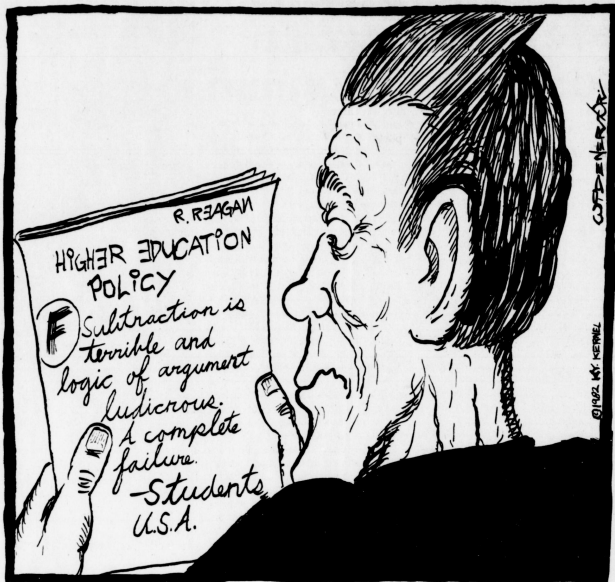 R. REAGAN
HIGHER EDUCATION
POLICY
F
Subtraction is
terrible and
logic of argument
ludicrous.
A complete
failure.
-Students
U.S.A.
©1982 KY. KERNEL